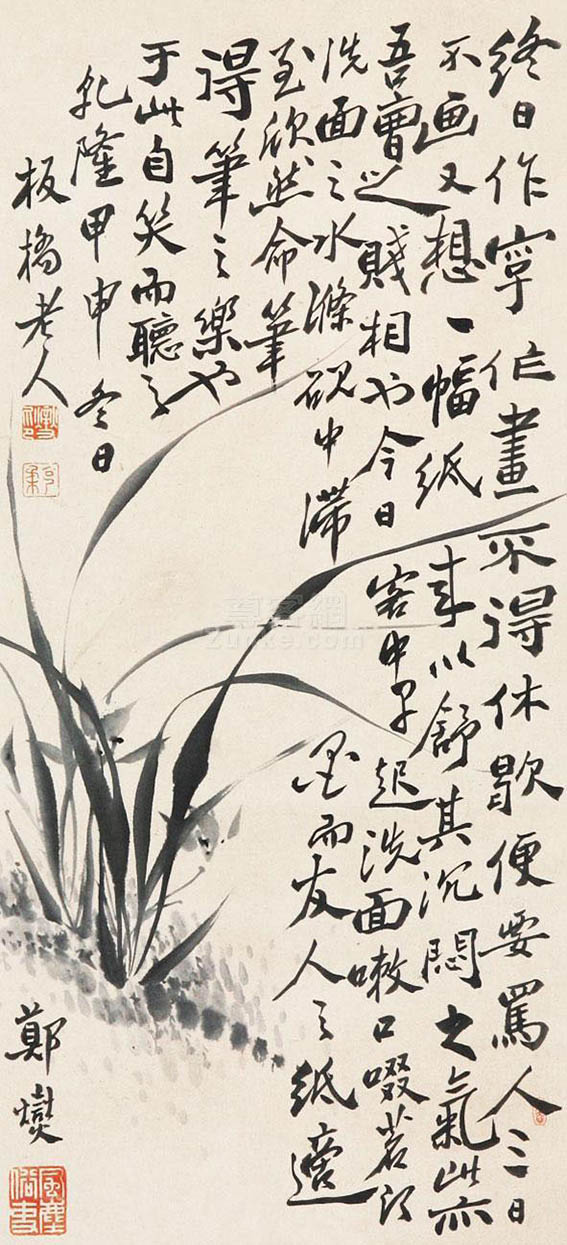 終日作字作畫不得休歇便要罵人三日
不画又想一幅紙来以舒其沉悶之氣此亦
吾曹之賤相也今日客中早起洗面嗽口啜茗
洗面之水滌硯中滯墨而友人之紙適
至欣然命筆
得筆之樂也
于此自笑而聽之
乾隆甲申冬日
板橋老人
鄭燮
風塵俗吏
尊客網
Zunke.com